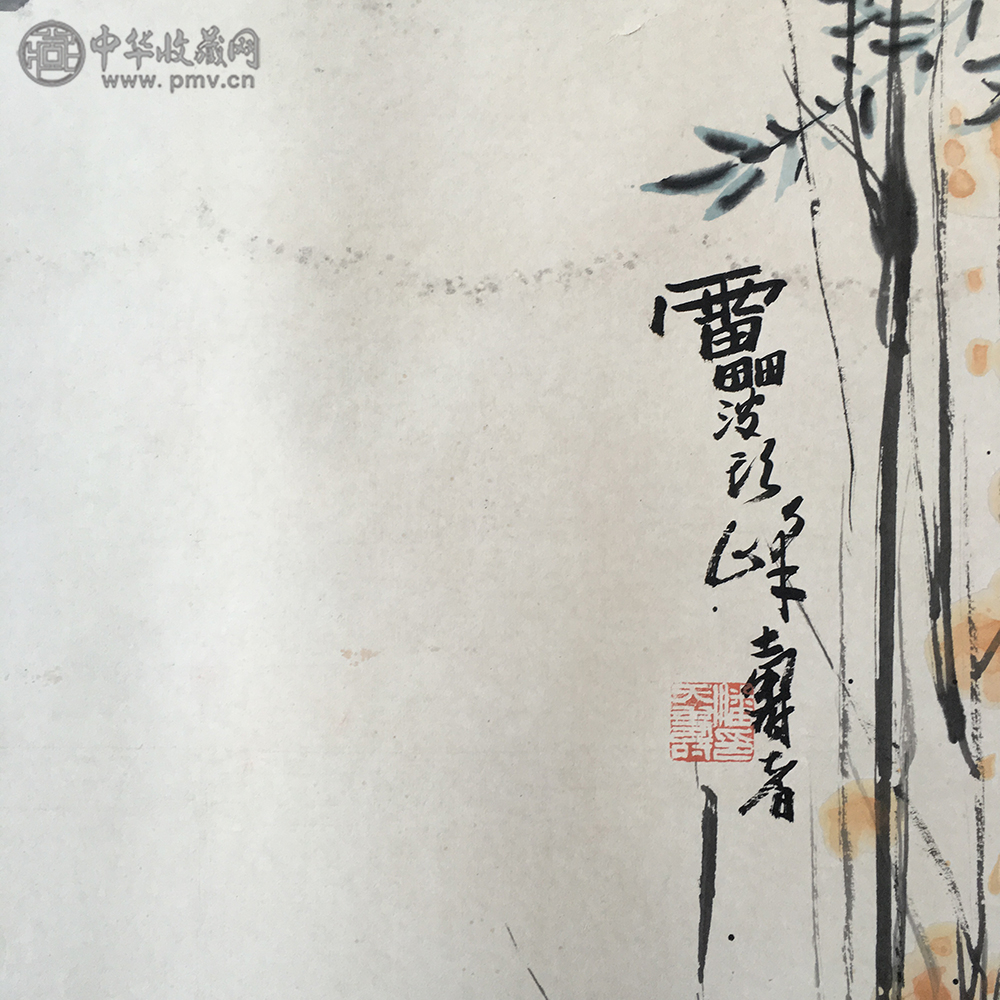 中华收藏网
www.pmv.cn
雷婆頭峰壽者